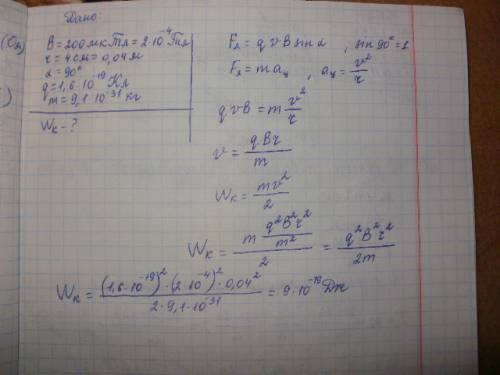 Дано:
B=200мкТл=2·10⁻⁴Тл
r=4см=0,04м
α=90°
q=1,6·10⁻¹⁹Кл
m=9,1·10⁻³¹кг
Wк-?
Fл=qvBsinα, sin90°=1
Fл=maц, aц=v²/r
qvB=m v²/r
v=qBr/m
Wк=mv²/2
Wк=(m q²B²r²/m²)/2=q²B²r²/2m
Wк=((1,6·10⁻¹⁹)²·(2·10⁻⁴)²·0,04²)/(2·9,1·10⁻³¹)=9·10⁻¹⁹Дж